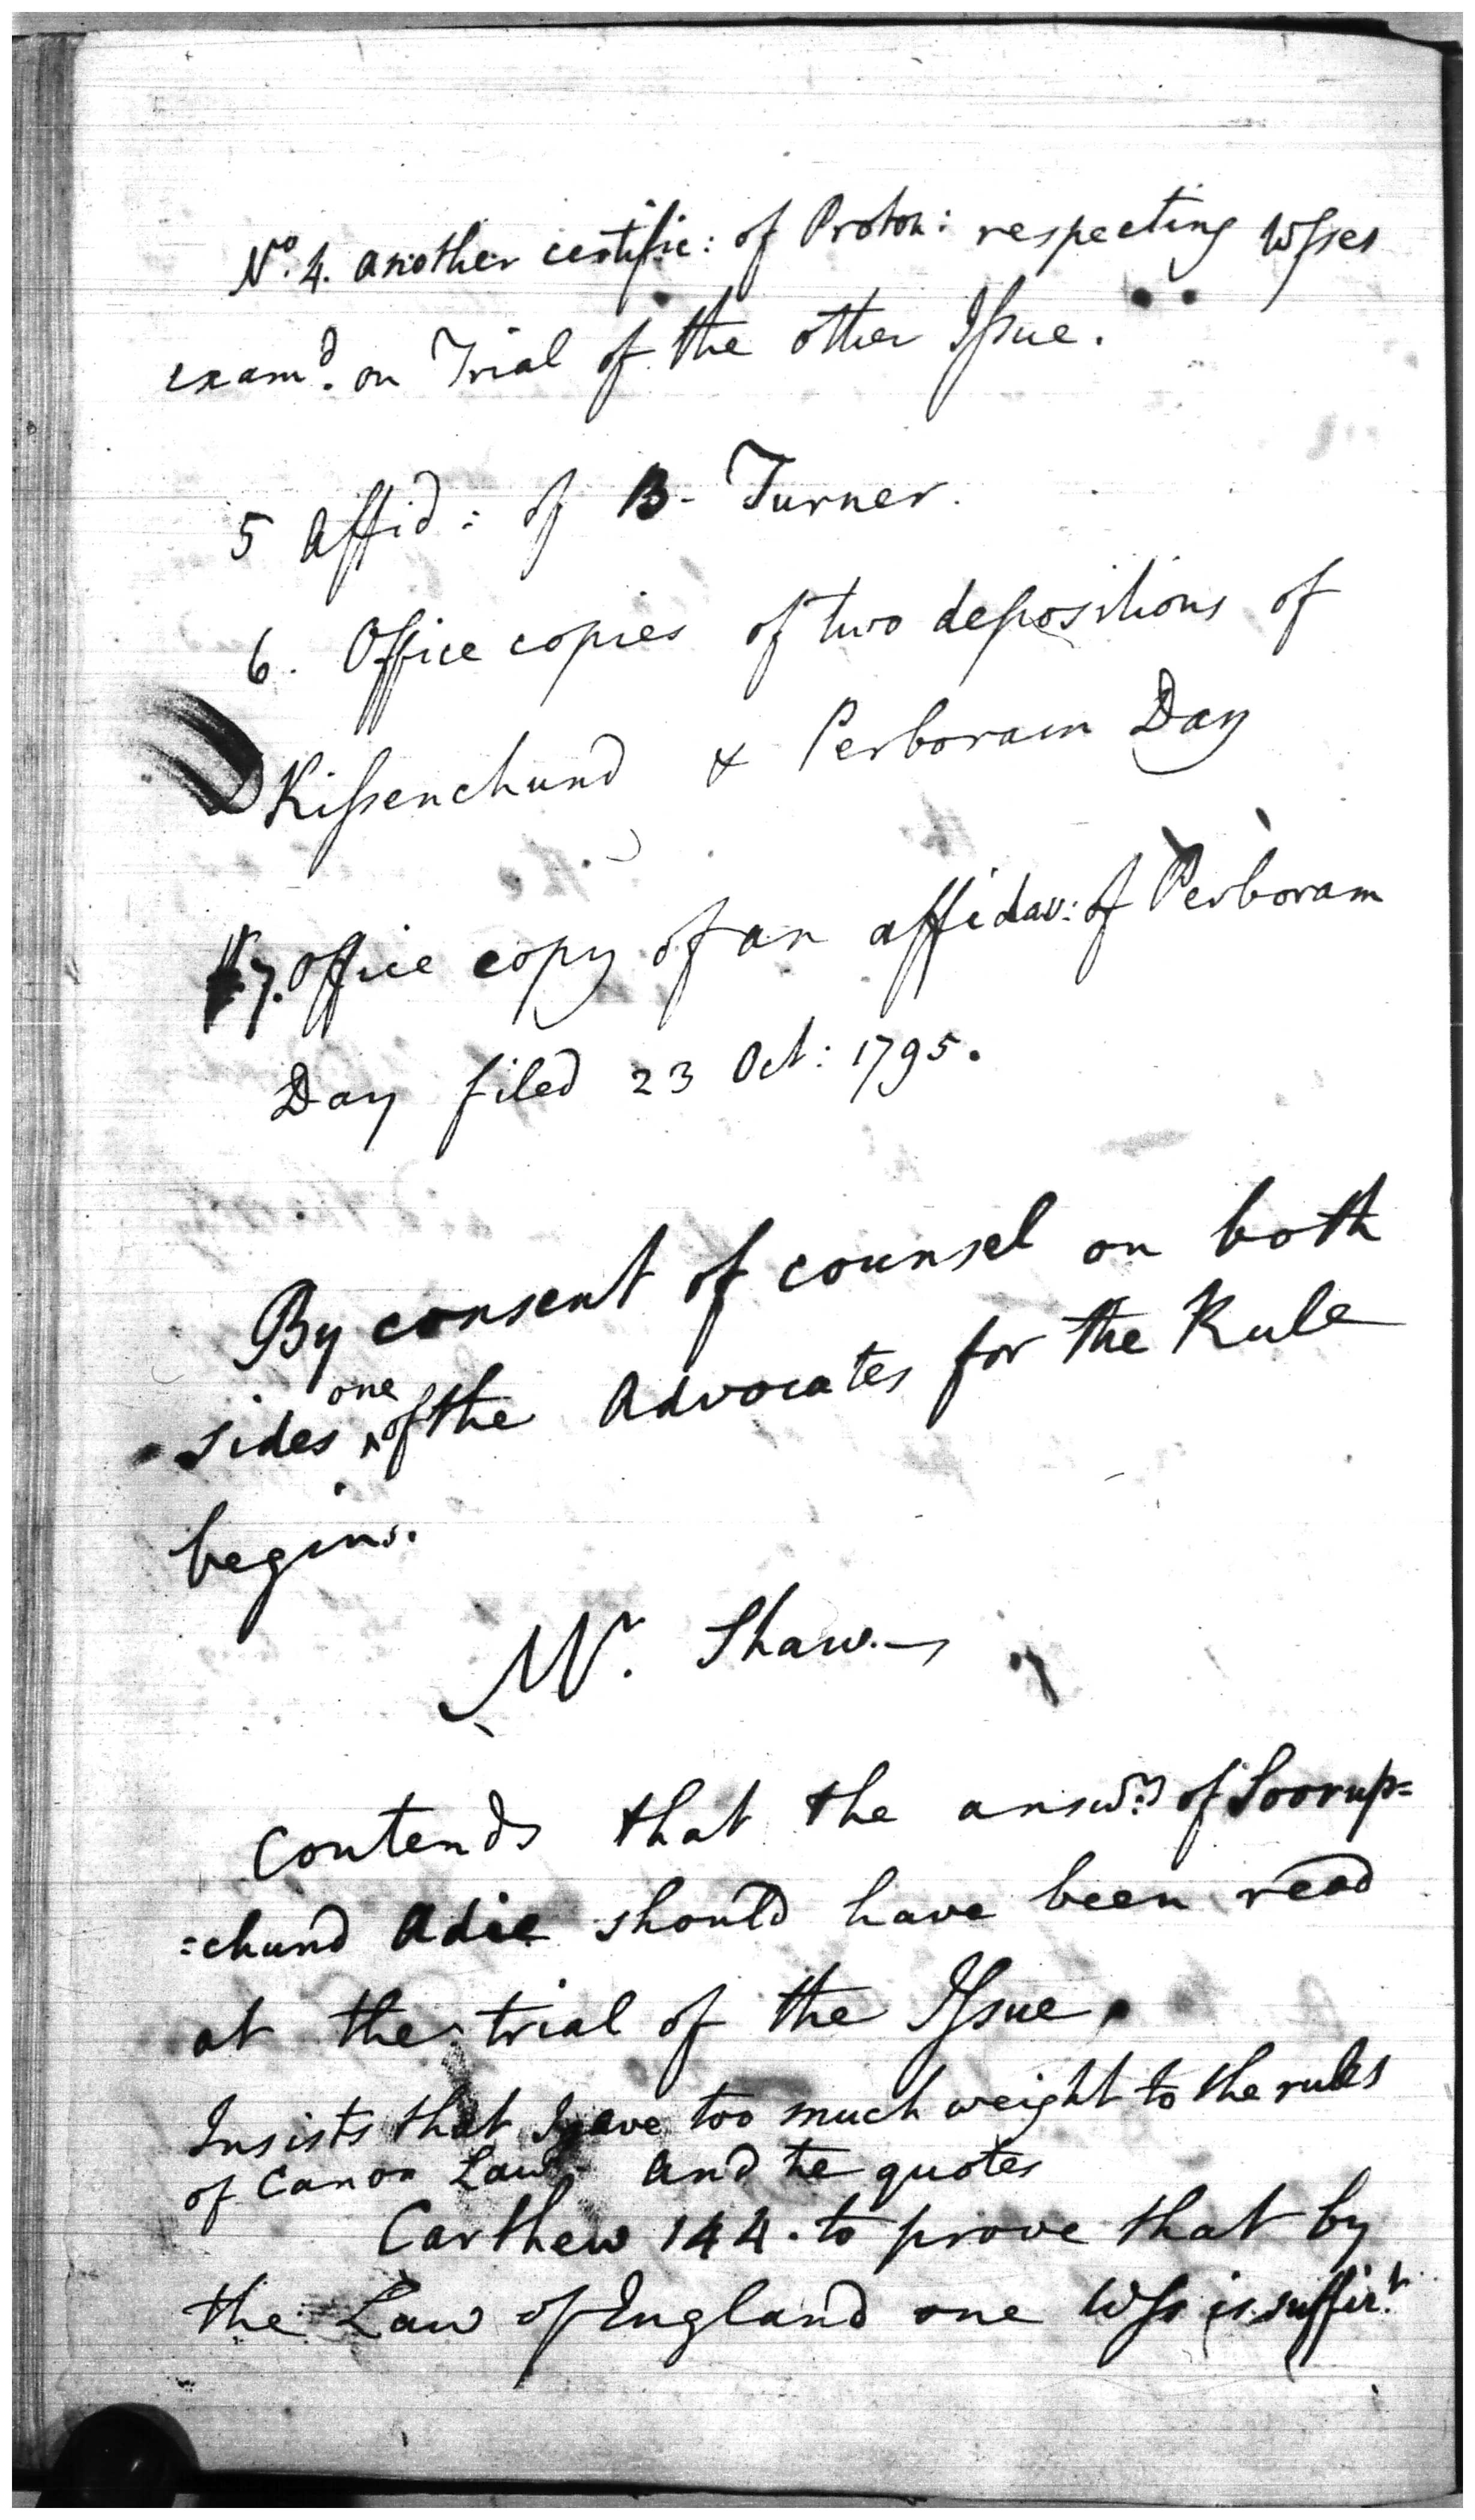 No. 4. another certific: of Proton: respecting Wsses
examd. on Trial of the other Issue.
5 Affid: of B. Turner.
6. Office copies of two depositions of
Kissenchund & Perboram Day
7. Office copy of an affidav: of Perboram
Day filed 23 Oct: 1795.
By consent of counsel on both
sides one of the Advocates for the Rule
begins.
Mr. Shaw.
Contends that the answrs of Soorup=
=chund Adie should have been read
at the trial of the Issue.
Insists that I gave too much weight to the rules
of Canon Law. And he quotes
Carthew 144. to prove that by
the Law of England one Wss is suffict.